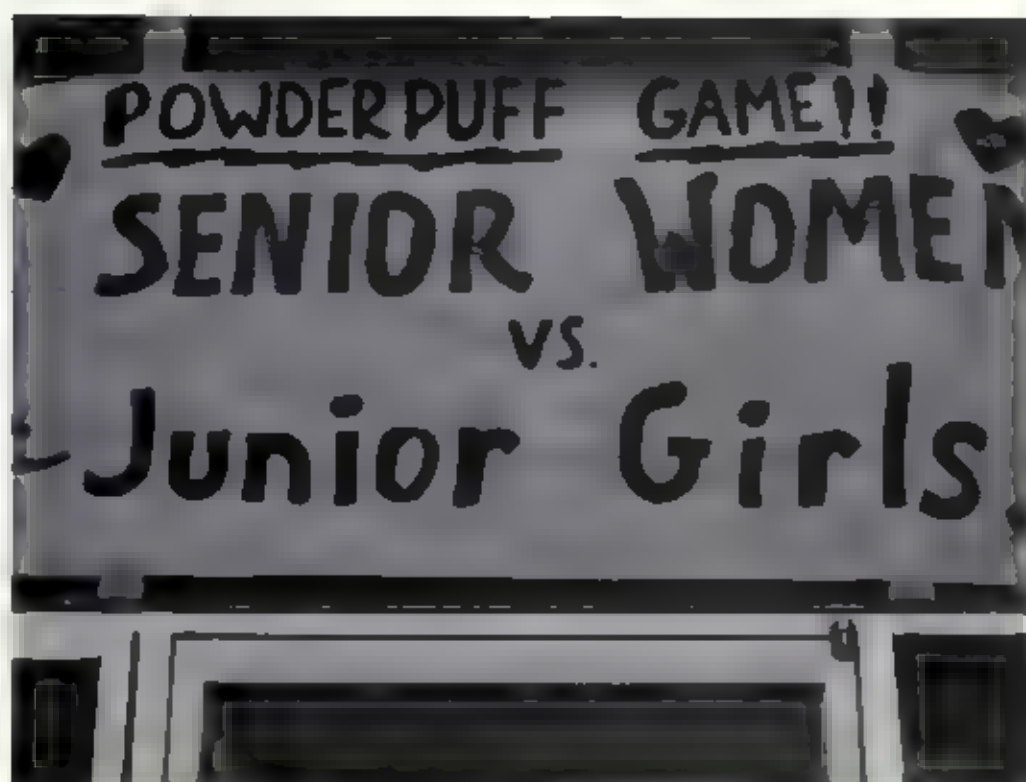 POWDERPUFF GAME!!
SENIOR WOMEN
vs.
Junior Girls